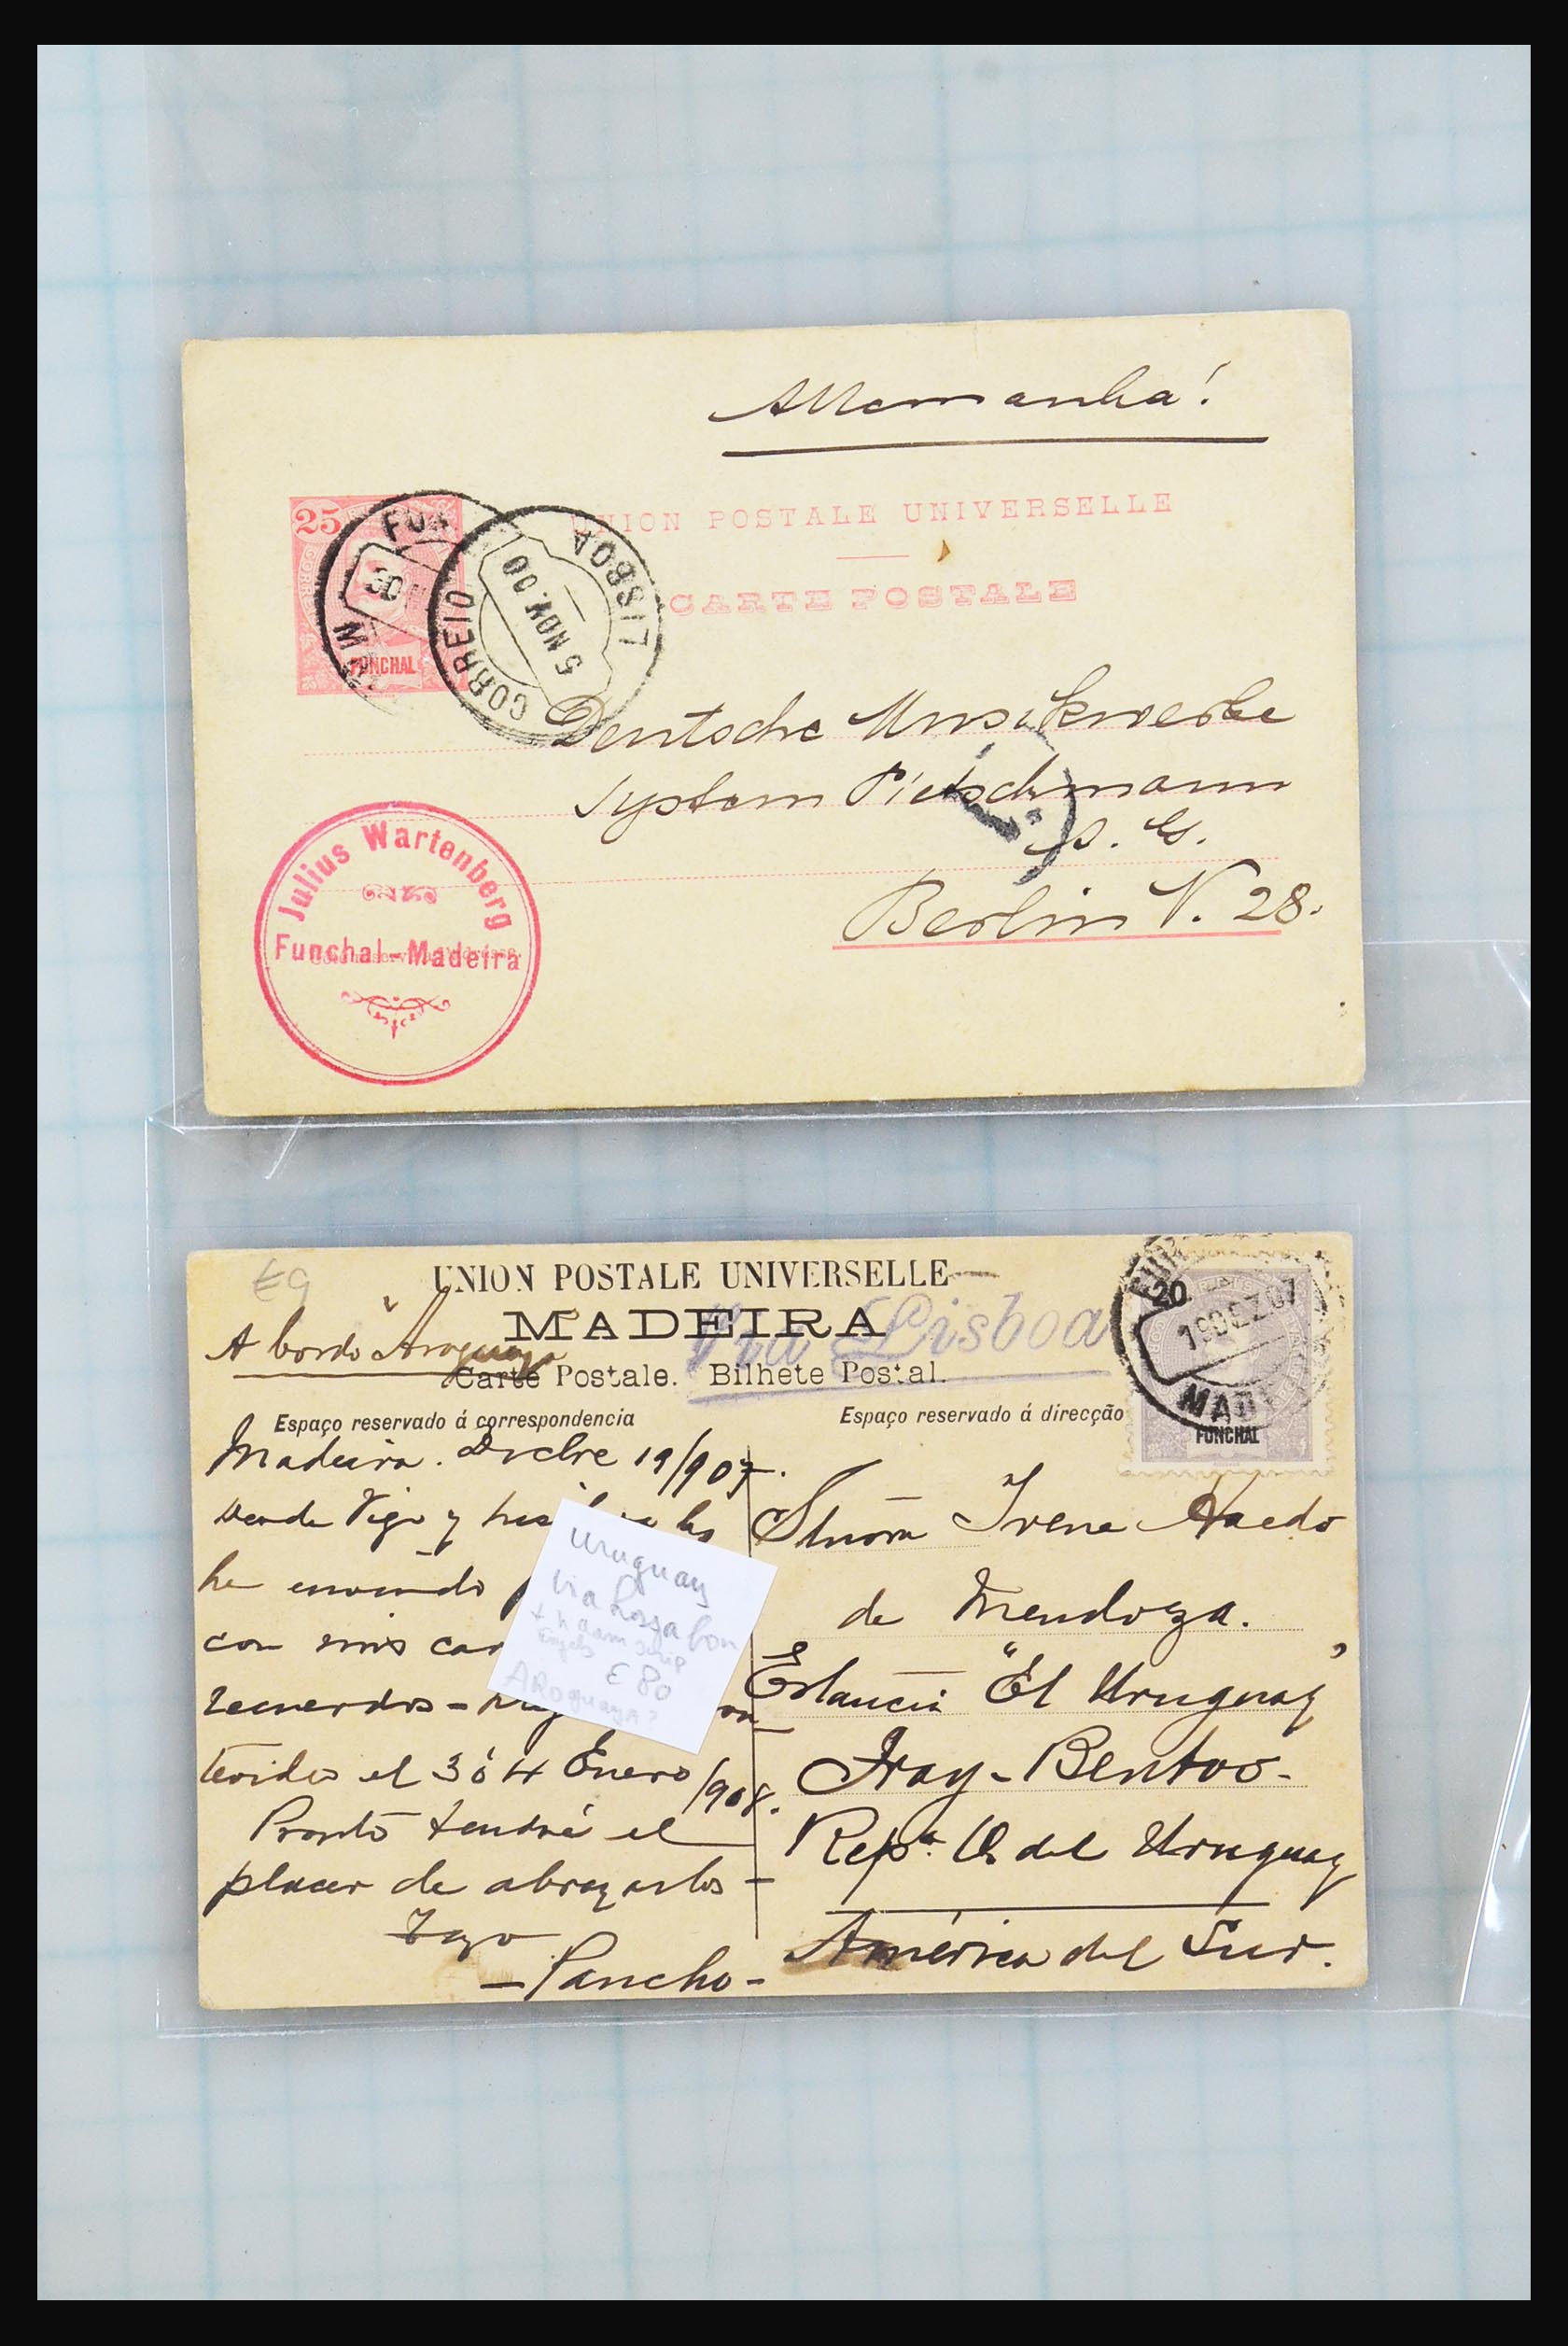 Allemanha!
25
UNION POSTALE UNIVERSELLE
CARTE POSTALE
FUN
30
FUNCHAL
CORREIO
5 NOV. 00
LISBOA
Deutsche Musikwerke
System Pietschmann
A. G.
Berlin N. 28.
Julius Wartenberg
Funchal-Madeira
€9
UNION POSTALE UNIVERSELLE
MADEIRA
Via Lisboa
A bordo "Araguaya
Carte Postale. Bilhete Postal.
Espaço reservado á correspondencia
Espaço reservado á direcção
20
19 DEZ 07
MADEIRA
FUNCHAL
Madeira. Dicbre 19/907.
Desde Vigo y
he enviado
con mis
recuerdos -
el 3 ó 4 Enero/908.
Pronto tendré el
placer de abrazarlos -
- Pancho -
Uruguay
via Lissabon
+ naam schip
Engels
€ 80
ARoguaya?
Señora Irene Haedo
de Mendoza.
Estancia "El Uruguay"
Fray-Bentos-
Repª. O. del Uruguay
América del Sur.